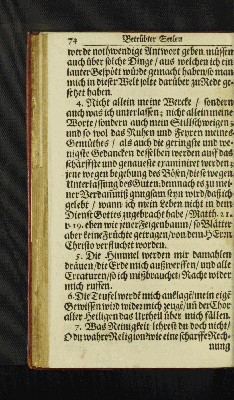 74 Betrübter Seelen
werde nothwendige Antwort geben müssen
auch über solche Dinge / aus welchen ich ein
lauter Gespött würde gemacht haben / so man
mich in dieser Welt solte darüber zu Rede ge-
setzet haben.
4. Nicht allein meine Wercke / sondern
auch was ich unterlassen; nicht allein meine
Worte / sondern auch mein Stillschweigen;
und so wol das Ruhen und Feyren meines
Gemüthes / als auch die geringste und we-
nigste Gedancken desselben werden auff das
schärffste und genaueste examiniret werden;
jene wegen begehung des Bösen / diese wegen
Unterlassung des Guten. dennach es zu mei-
ner Verdamniß gnugsam seyn wird / daß ich
gelebt / wann ich mein Leben nicht in dem
Dienst Gottes zugebracht habe / Matth. 21.
v. 19. eben wie jener Feigenbaum / so Blätter
aber keine Früchte getragen / von dem HErrn
Christo verfluchet worden.
5. Die Himmel werden mir damahlen
dräuen / die Erde mich außwerffen / und alle
Creaturen / so ich mißbrauchet / Rache wider
mich ruffen.
6. Die Teufel werdē mich anklagē / mein eigē
Gewissen wird wider mich zeugē / uñ der Chor
aller Heiligen das Urtheil über mich fällen.
7. Was Reinigkeit lehrest du doch nicht /
O du wahre Religion! wie eine scharffe Rech-
nung